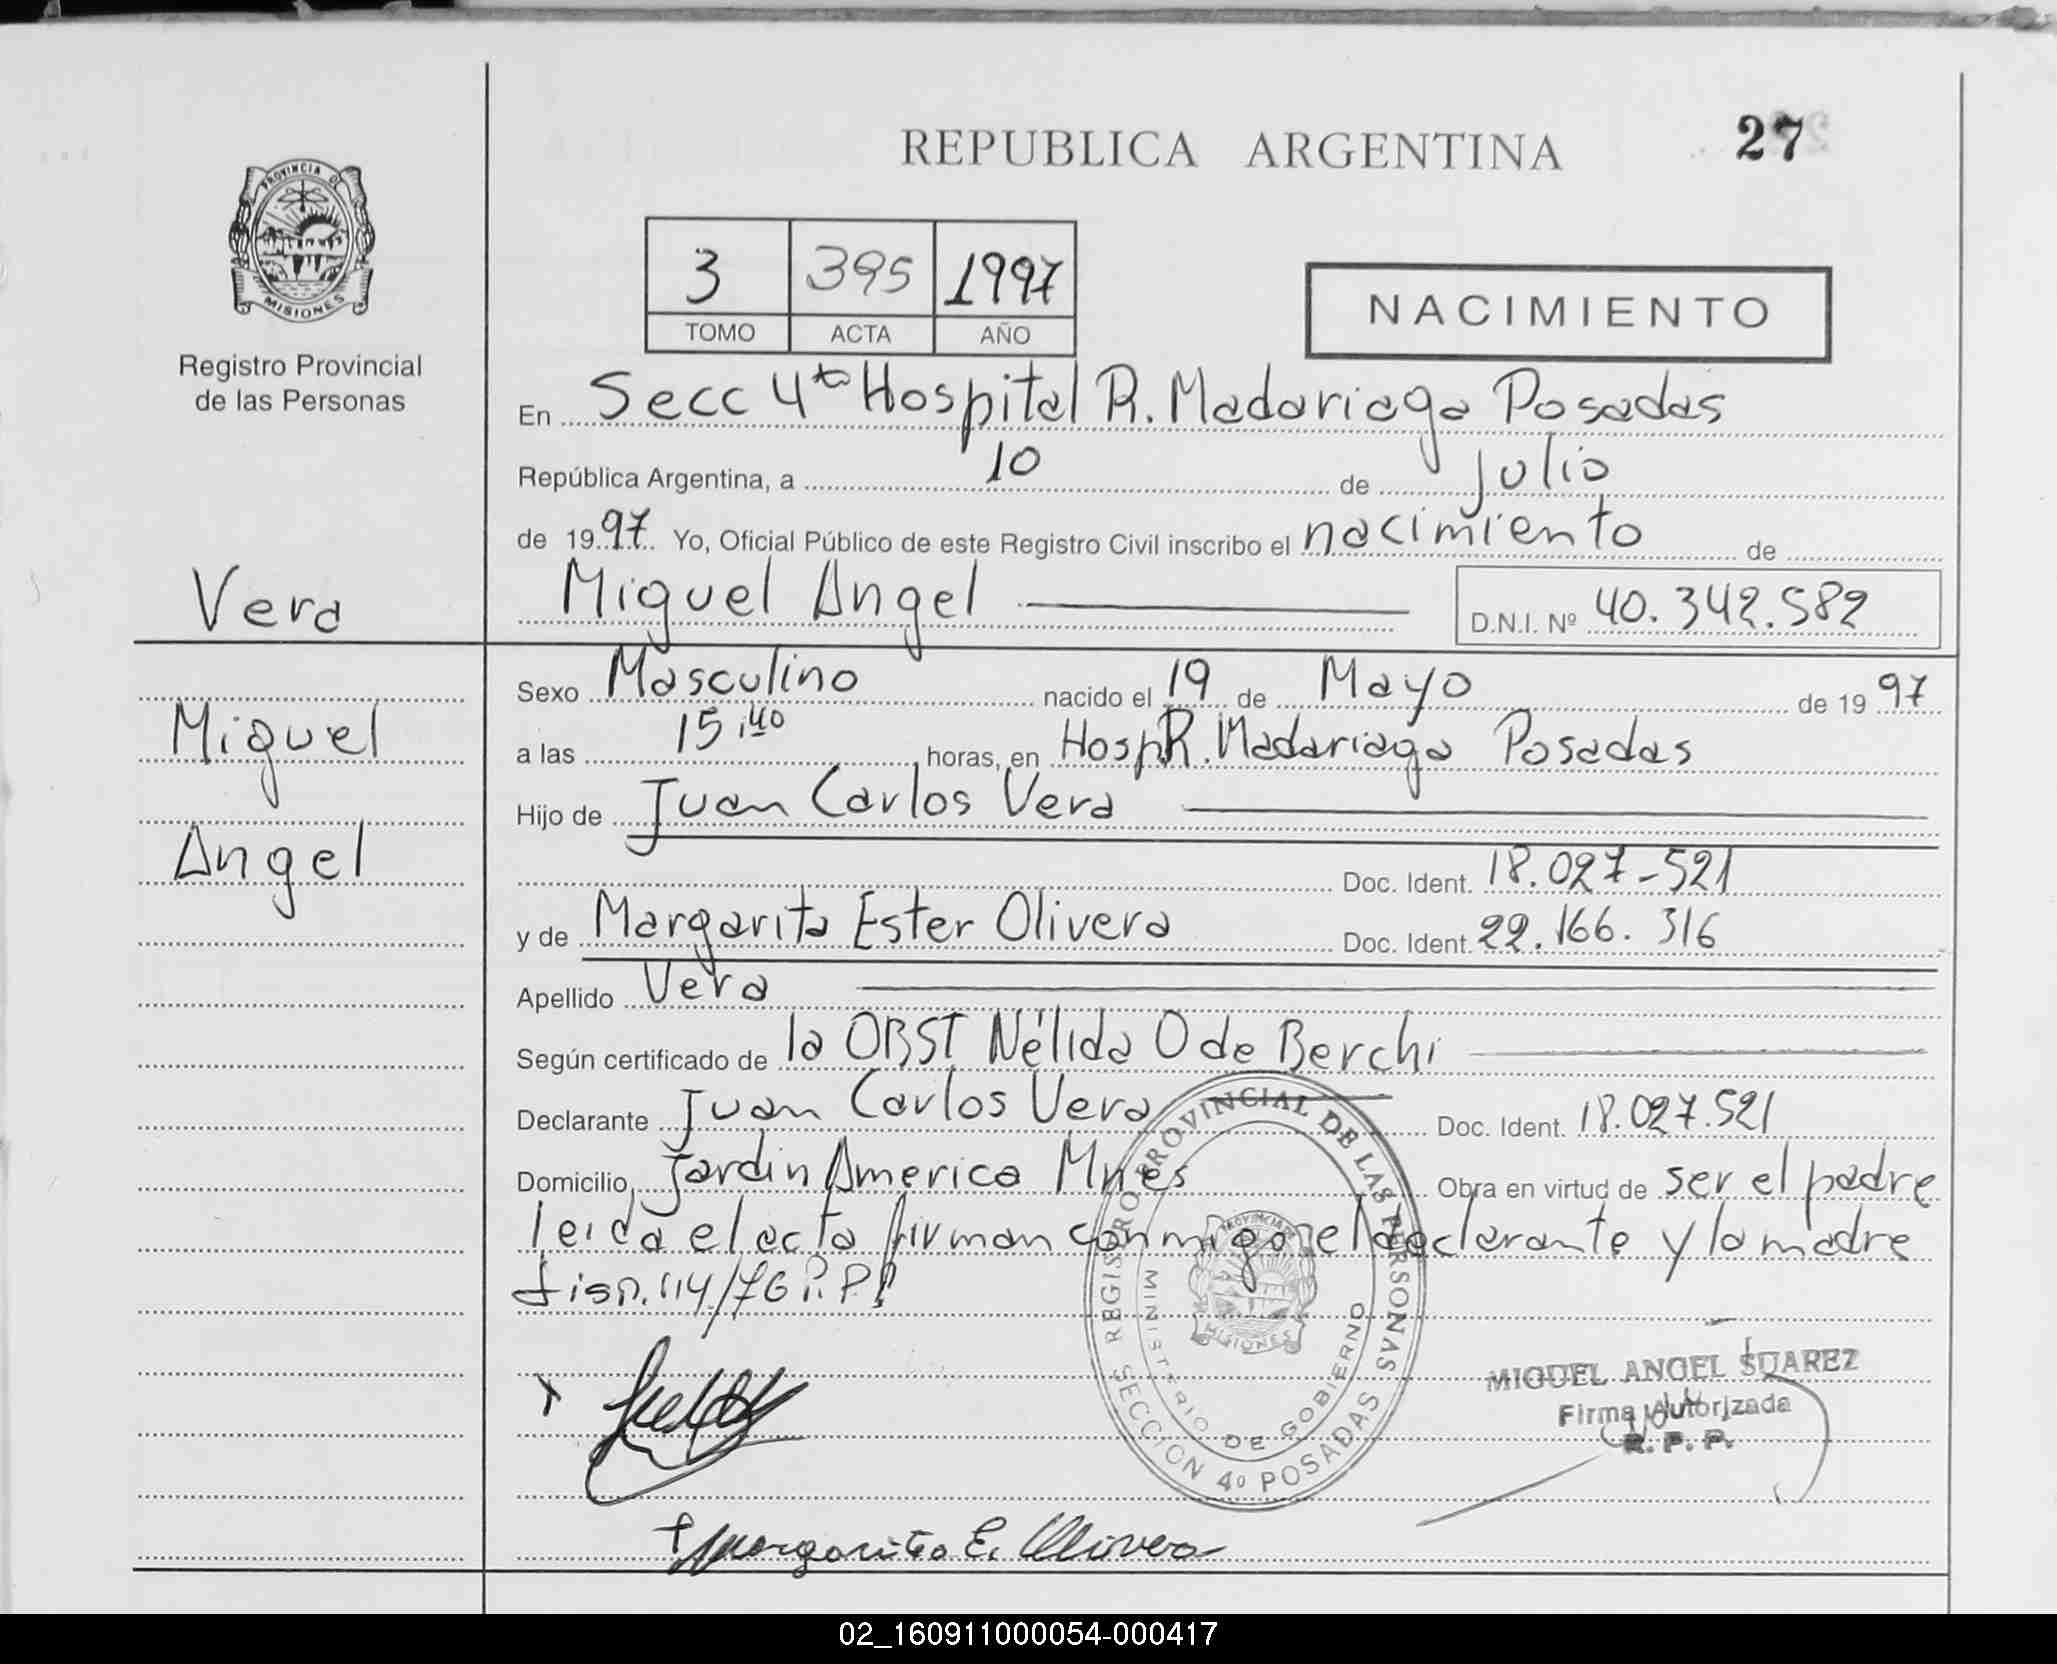 REPUBLICA ARGENTINA
27
PROVINCIA DE
MISIONES
Registro Provincial
de las Personas
3 395 1997
TOMO ACTA AÑO
NACIMIENTO
En Secc 4ta Hospital R. Madariaga Posadas
República Argentina, a 10 de Julio
de 1997. Yo, Oficial Público de este Registro Civil inscribo el nacimiento de
Vera
Miguel Angel
D.N.I. Nº 40.342.582
Sexo Masculino nacido el 19 de Mayo de 1997
Miguel
a las 15,40 horas, en Hosp R. Madariaga Posadas
Hijo de Juan Carlos Vera
Angel
Doc. Ident. 18.027-521
y de Margarita Ester Olivera Doc. Ident. 22.166.316
Apellido Vera
Según certificado de la OBST Nélida O de Berchi
Declarante Juan Carlos Vera Doc. Ident. 18.027.521
Domicilio Jardin America Mnes Obra en virtud de ser el padre
leida el acta firman conmigo el declarante y la madre
disp. 114/76 R.P.P
REGISTRO PROVINCIAL DE LAS PERSONAS
SECCION 4º POSADAS
MINISTERIO DE GOBIERNO
PROVINCIA DE
MISIONES
MIGUEL ANGEL SUAREZ
Firma Autorizada
R. P. P.
Margarita E. Olivera
02_160911000054-000417